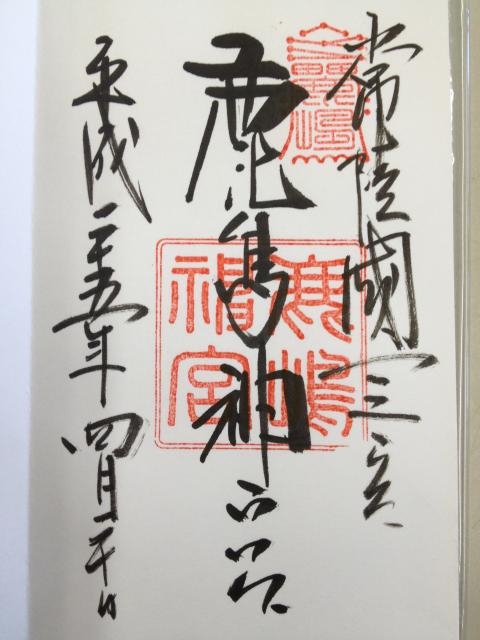 常陸國一之宮
鹿島神宮
鹿嶋
神宮
平成二十五年四月二十日